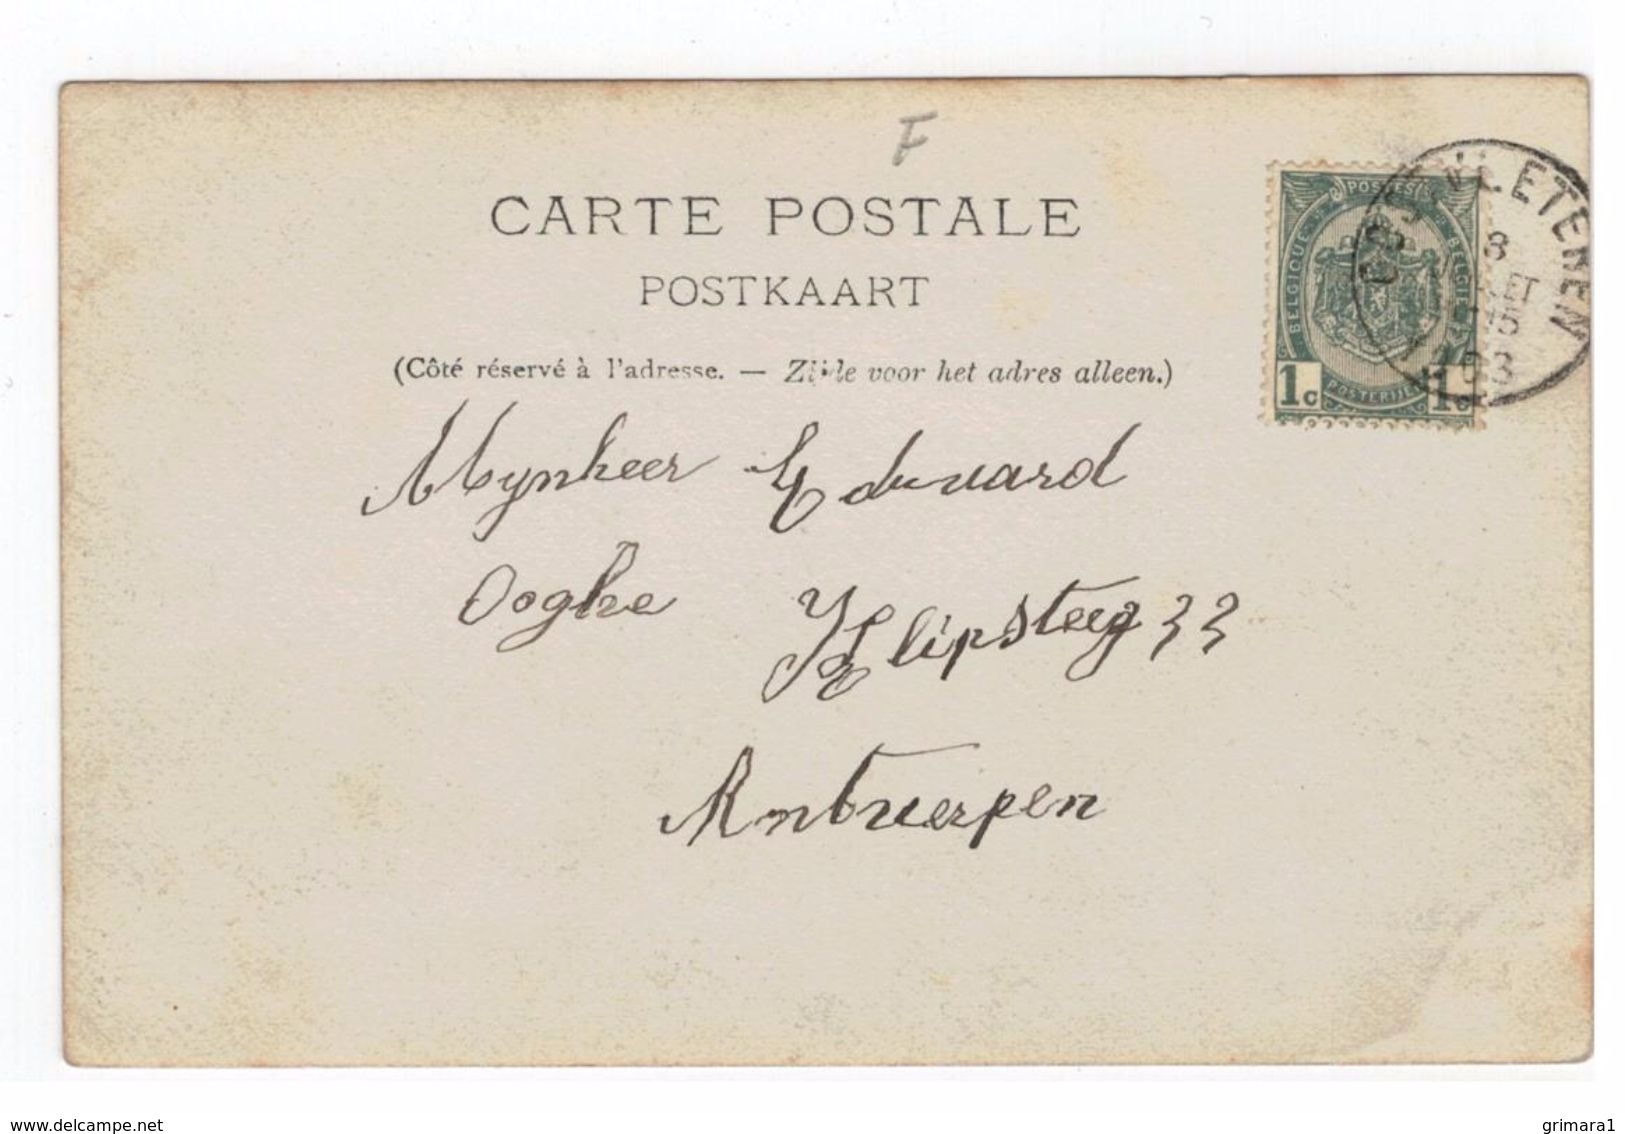 F
CARTE POSTALE
POSTKAART
(Côté réservé à l'adresse. — Zijde voor het adres alleen.)
POSTES
BELGIQUE
BELGIE
1c
POSTERIJEN
1c
LETENEN
8
Mynheer Eduard
Ooghe Klipsteeg 33
Antwerpen
www.delcampe.net
grimara1